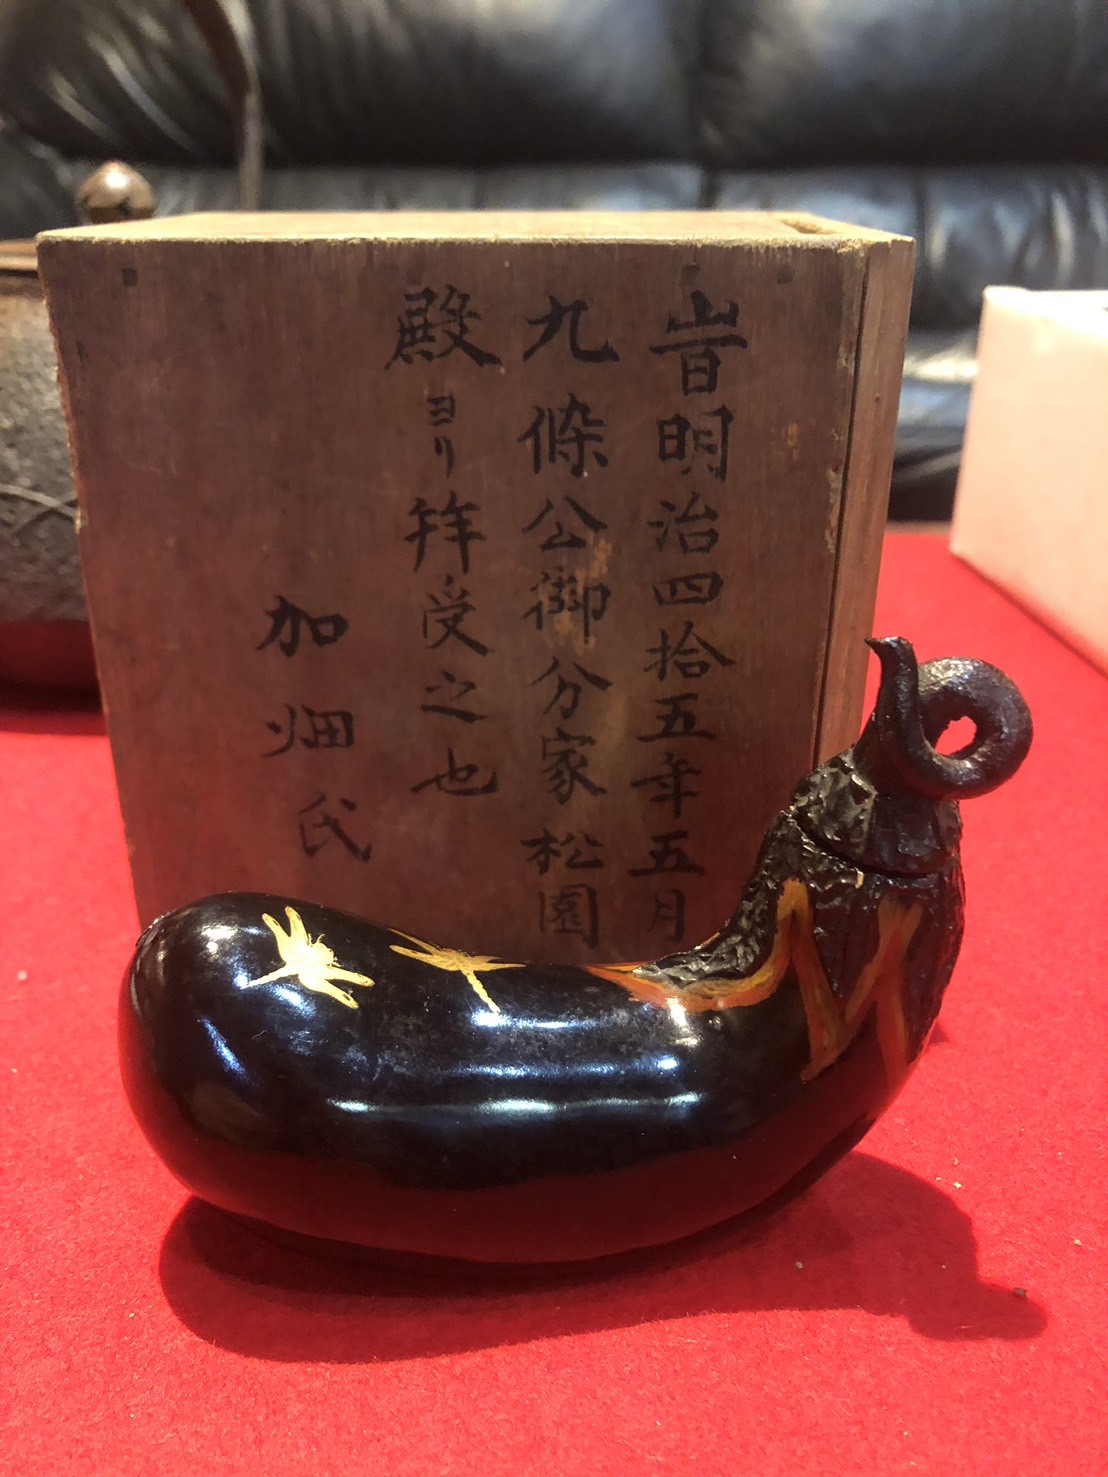 旹明治四拾五年五月
九條公御分家松園
殿ヨリ拝受之也
加畑氏